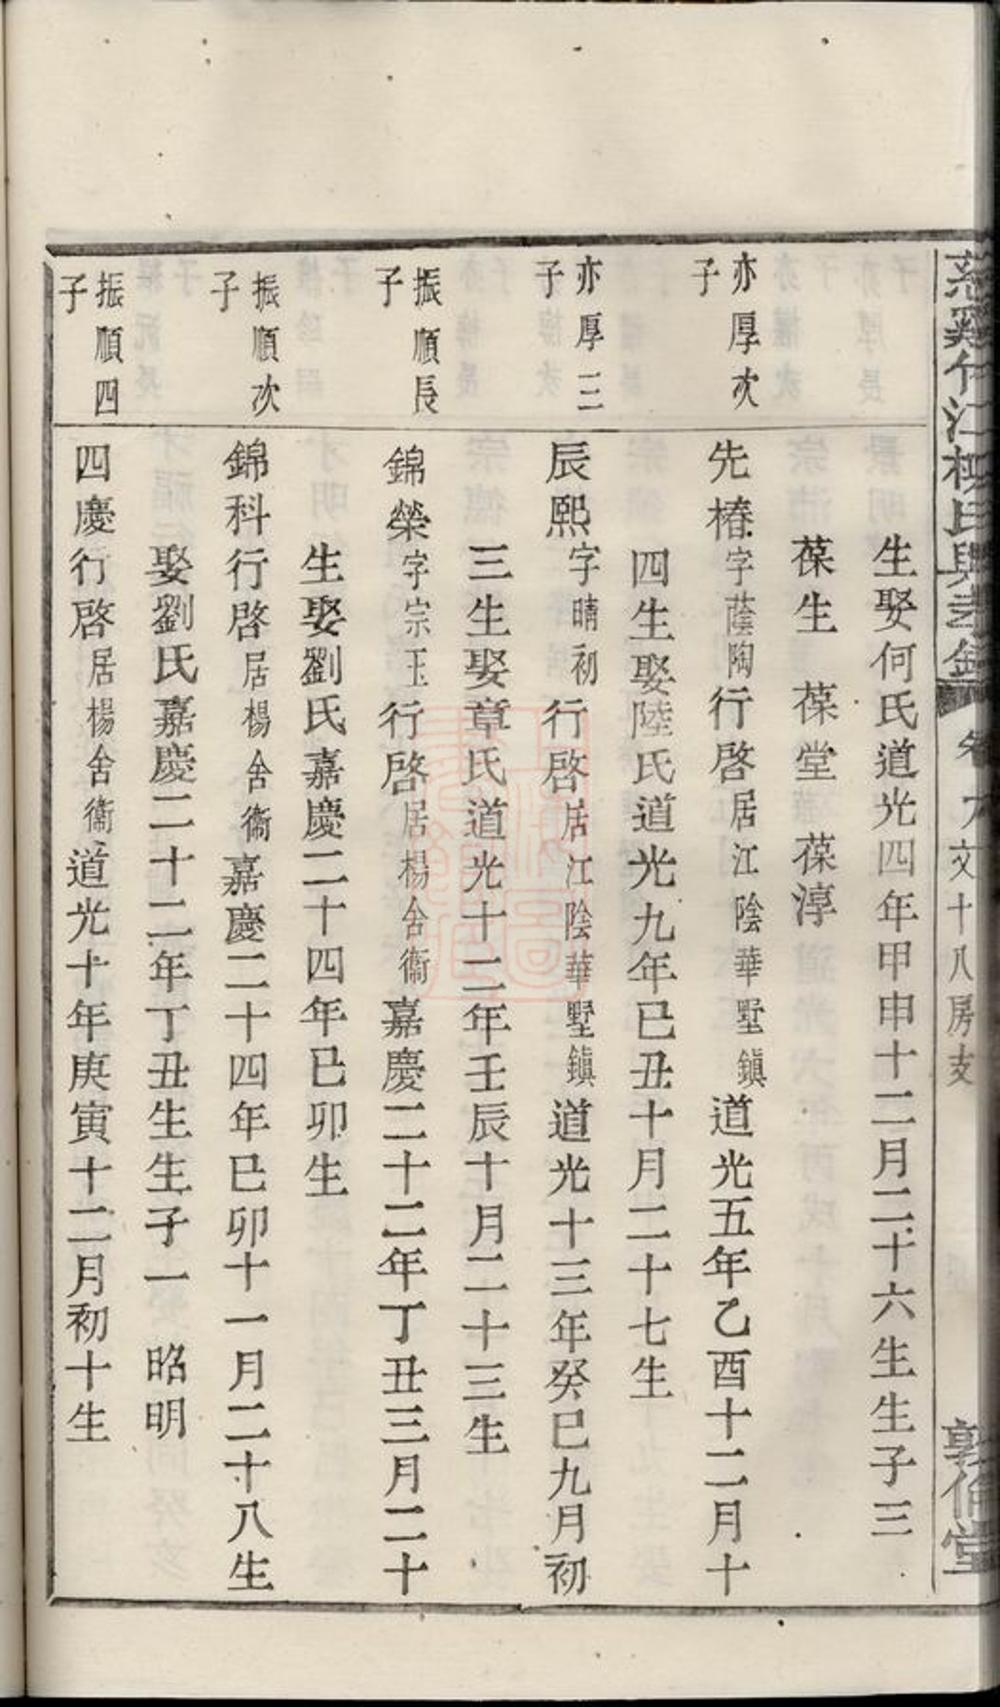 文十八房支
敦倫堂
生娶何氏道光四年甲申十二月二十六生生子三
葆生 葆堂 葆淳
亦厚次子
先椿字蔭陶行啓居江陰華墅鎮道光五年乙酉十二月十
四生娶陸氏道光九年己丑十月二十七生
亦厚三子
辰熙字晴初行啓居江陰華墅鎮道光十三年癸巳九月初
三生娶章氏道光十二年壬辰十月二十三生
振順長子
錦榮字宗玉行啓居楊舍衞嘉慶二十二年丁丑三月二十
生娶劉氏嘉慶二十四年己卯生
振順次子
錦科行啓居楊舍衞嘉慶二十四年己卯十一月二十八生
娶劉氏嘉慶二十二年丁丑生生子一 昭明
振順四子
四慶行啓居楊舍衞道光十年庚寅十二月初十生